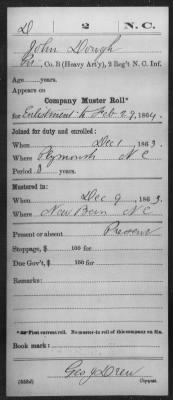 D 2 N.C.
John Dough
Pvt., Co. B (Heavy Art'y), 2 Reg't N. C. Inf.
Age years.
Appears on
Company Muster Roll*
for Enlistment to Feb 29, 1864.
Joined for duty and enrolled:
When Dec 1, 1863.
Where Plymouth N C
Period 3 years.
Mustered in:
When Dec 9, 1863.
Where New Bern N C
Present or absent Present
Stoppage, $ 100 for
Due Gov't, $ 100 for
Remarks:
*First current roll. No muster-in roll of this company on file.
Book mark:
Geo J Drew
(358d) Copyist.